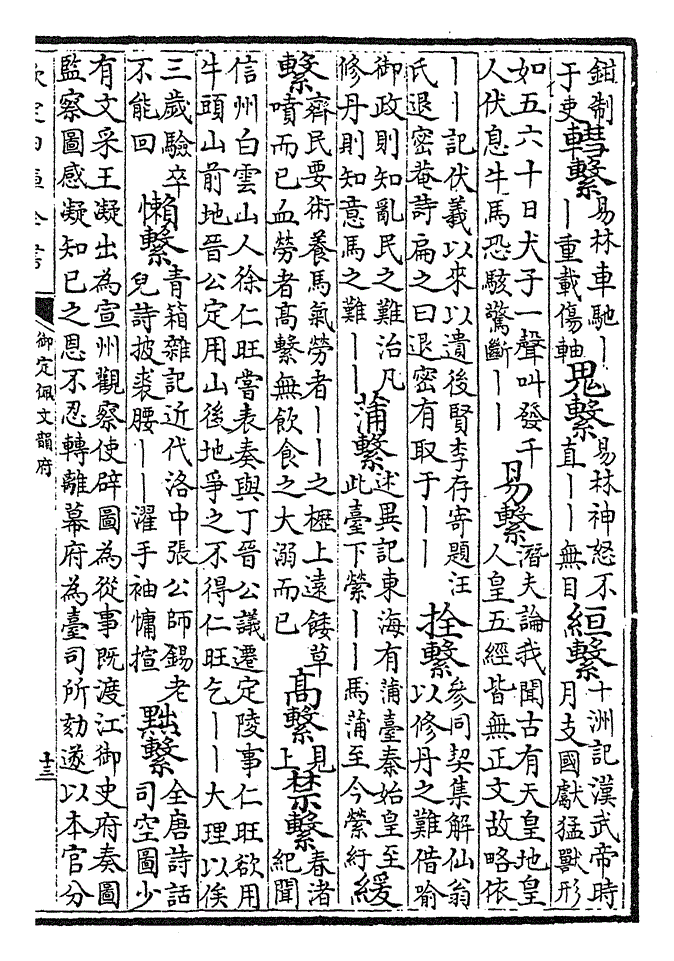 鉗制于吏 轊繫 易林車馳丨丨重載傷軸 鬼繫 易林神怒不直丨丨無目 絙繫 十洲記漢武帝時月支國獻猛獸形
如五六十日犬子一聲叫發千人伏息牛馬恐駭驚斷丨丨 易繫 潛夫論我聞古有天皇地皇人皇五經皆無正文故略依
丨丨記伏羲以來以遺後賢李存寄題汪氏退密菴詩扁之曰退密有取于丨丨 拴繫 參同契集解仙翁以修丹之難借喻
御政則知亂民之難治凡修丹則知意馬之難丨丨 蒲繫 述異記東海有蒲臺秦始皇至此臺下縈丨丨馬蒲至今縈紆 緩
繫 齊民要術養馬氣勞者丨丨之櫪上遠餧草噴而已血勞者高繫無飲食之大溺而已 高繫 見上 禁繫 春渚紀聞
信州白雲山人徐仁旺嘗表奏與丁晉公議遷定陵事仁旺欲用牛頭山前地晉公定用山後地爭之不得仁旺乞丨丨大理以俟
三歲驗卒不能回 懶繫 青箱雜記近代洛中張公師錫老兒詩披裘腰丨丨濯手袖慵揎 黜繫 全唐詩話司空圖少
有文采王凝出為宣州觀察使辟圖為從事既渡江御史府奏圖監察圖感凝知己之恩不忍轉離幕府為臺司所劾遂以本官分
欽定四庫全書
御定佩文韻府
十三